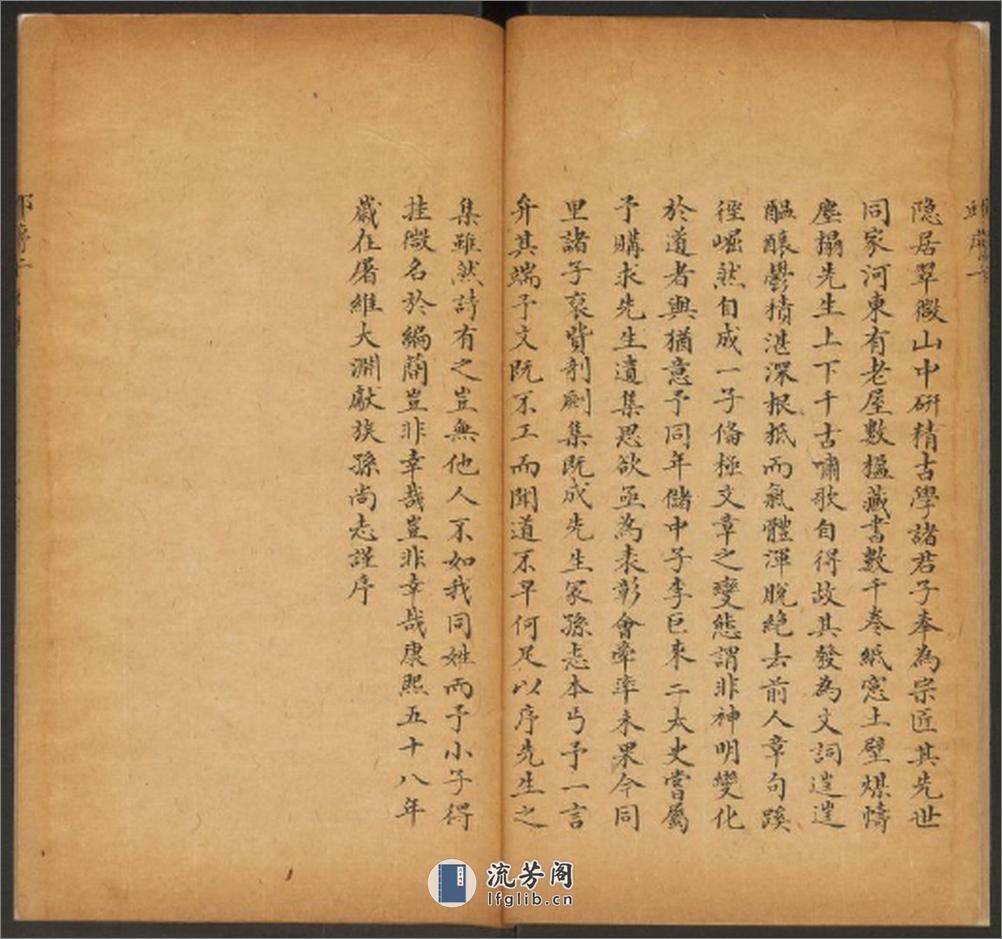 隐居翠微山中研精古學諸君子奉為宗匠其先世
同家河東有老屋數楹藏書數千卷紙窓土壁煤幬
塵搨先生上下千古嘯歌自得故其發為文詞遑遑
醞釀鬱積湛深根抵而氣體渾脫絶去前人章句蹊
徑崛然自成一子偹極文章之變態謂非神明變化
於道者與猶意予同年儲中子李巨來二太史嘗屬
予購求先生遺集思欲亟為表彰會牽率未果今同
里諸子裒貲剞劂集既成先生冢孫志本丐予一言
弁其端予文既不工而聞道不早何足以序先生之
集雖然詩有之豈無他人不如我同姓而予小子得
挂微名於編蕳豈非幸哉豈非幸哉康熙五十八年
嵗在屠維大淵獻族孫尚志謹序
流芳阁
lfglib.cn